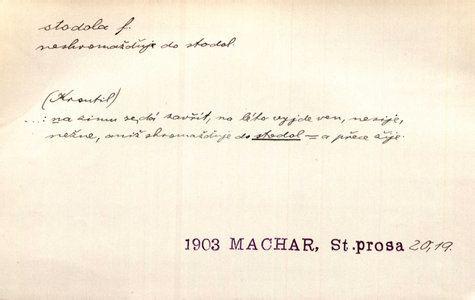 stodola f.
neshromažďuje do stodol.
(Kroutil)
...: na zimu se dá zavřít, na léto vyjde ven, neseje,
nežne, aniž shromažďuje do stodol = a přece žije.
1903 MACHAR, St.prosa 20,19.